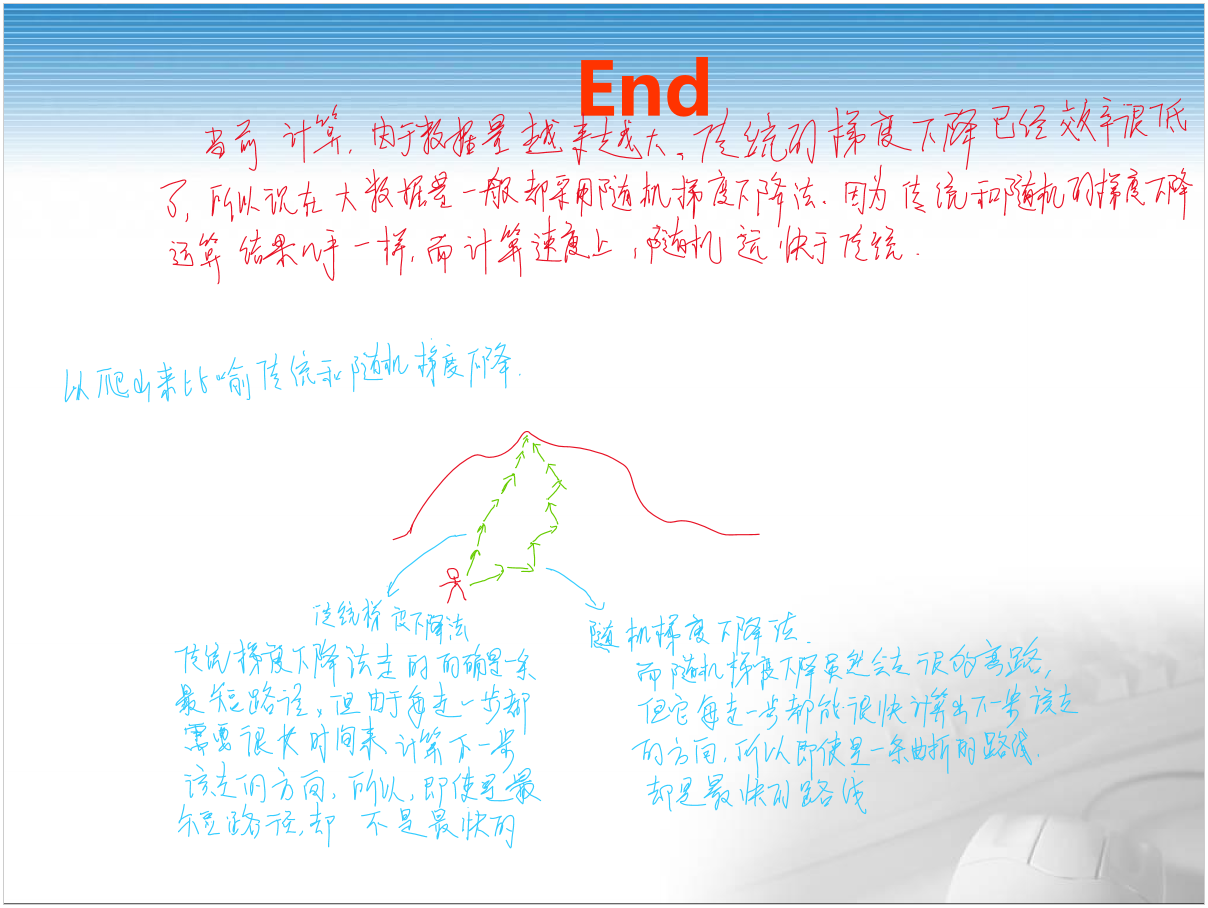 End
当前 计算, 由于数据量越来越大、传统的梯度下降已经效率很低
了, 所以说在大数据量一般都采用随机梯度下降法. 因为传统和随机的梯度下降
运算结果几乎一样, 而计算速度上, 随机远快于传统.
以爬山来比喻传统和随机梯度下降.
传统梯度下降法
传统梯度下降法走的的确是一条
最短路径, 但由于每走一步都
需要很长时间来计算下一步
该走的方向, 所以, 即使是最
短路径, 却 不是最快的
随机梯度下降法.
而随机梯度下降虽然会走很多弯路,
但它每走一步都能很快计算出下一步该走
的方向, 所以即使是一条曲折的路线.
却是最快的路线